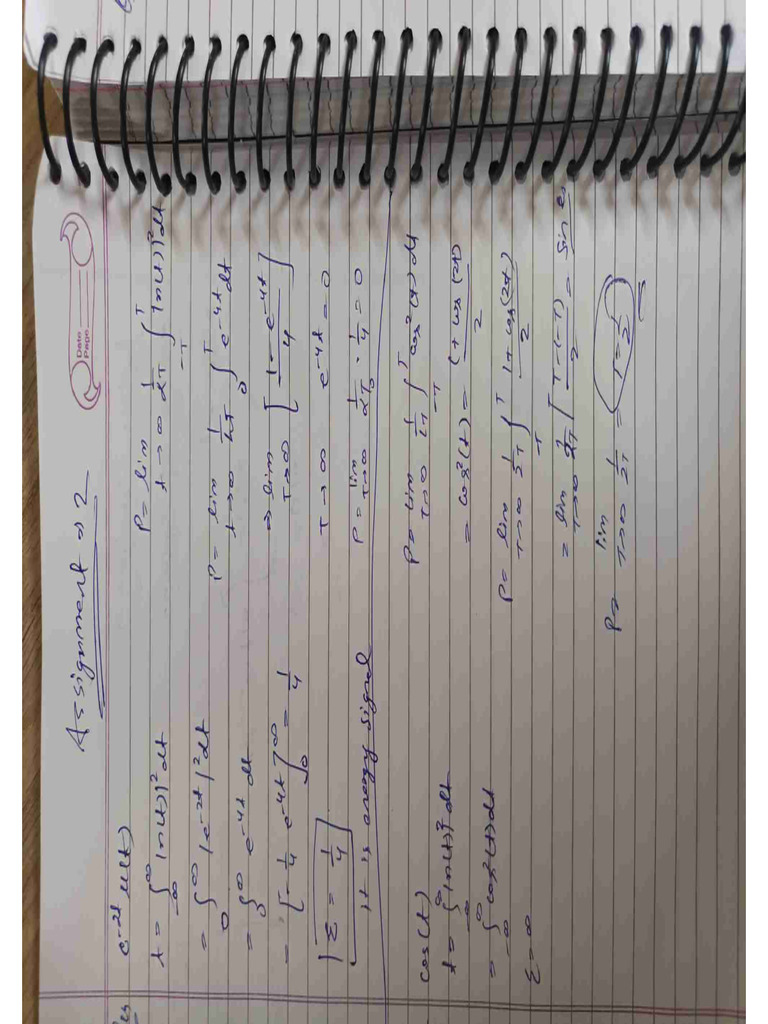 Assignment → 2
Date
Page
e^-2t u(t)
t = ∫_-∞^∞ |n(t)|² dt
= ∫_0^∞ |e^-2t|² dt
= ∫_0^∞ e^-4t dt
= [-1/4 e^-4t]_0^∞ = 1/4
E = 1/4
It is energy signal
P = lim t→∞ 1/2T ∫_-T^T |n(t)|² dt
P = lim t→∞ 1/2T ∫_0^T e^-4t dt
⇒ lim T→∞ [1 - e^-4t / 4]
T→∞ e^-4t = 0
P = lim T→∞ 1/2T · 1/4 = 0
cos(t)
t = ∫_-∞^∞ |n(t)|² dt
= ∫_-∞^∞ cos²(t) dt
E = ∞
P = lim T→∞ 1/2T ∫_-T^T cos²(t) dt
= cos²(t) = 1 + cos(2t) / 2
P = lim T→∞ 1/2T ∫_-T^T 1 + cos(2t) / 2
= lim T→∞ 1/2T [T-(-T) / 2 = sin
P = lim T→∞ 1/2T = T = 1/2